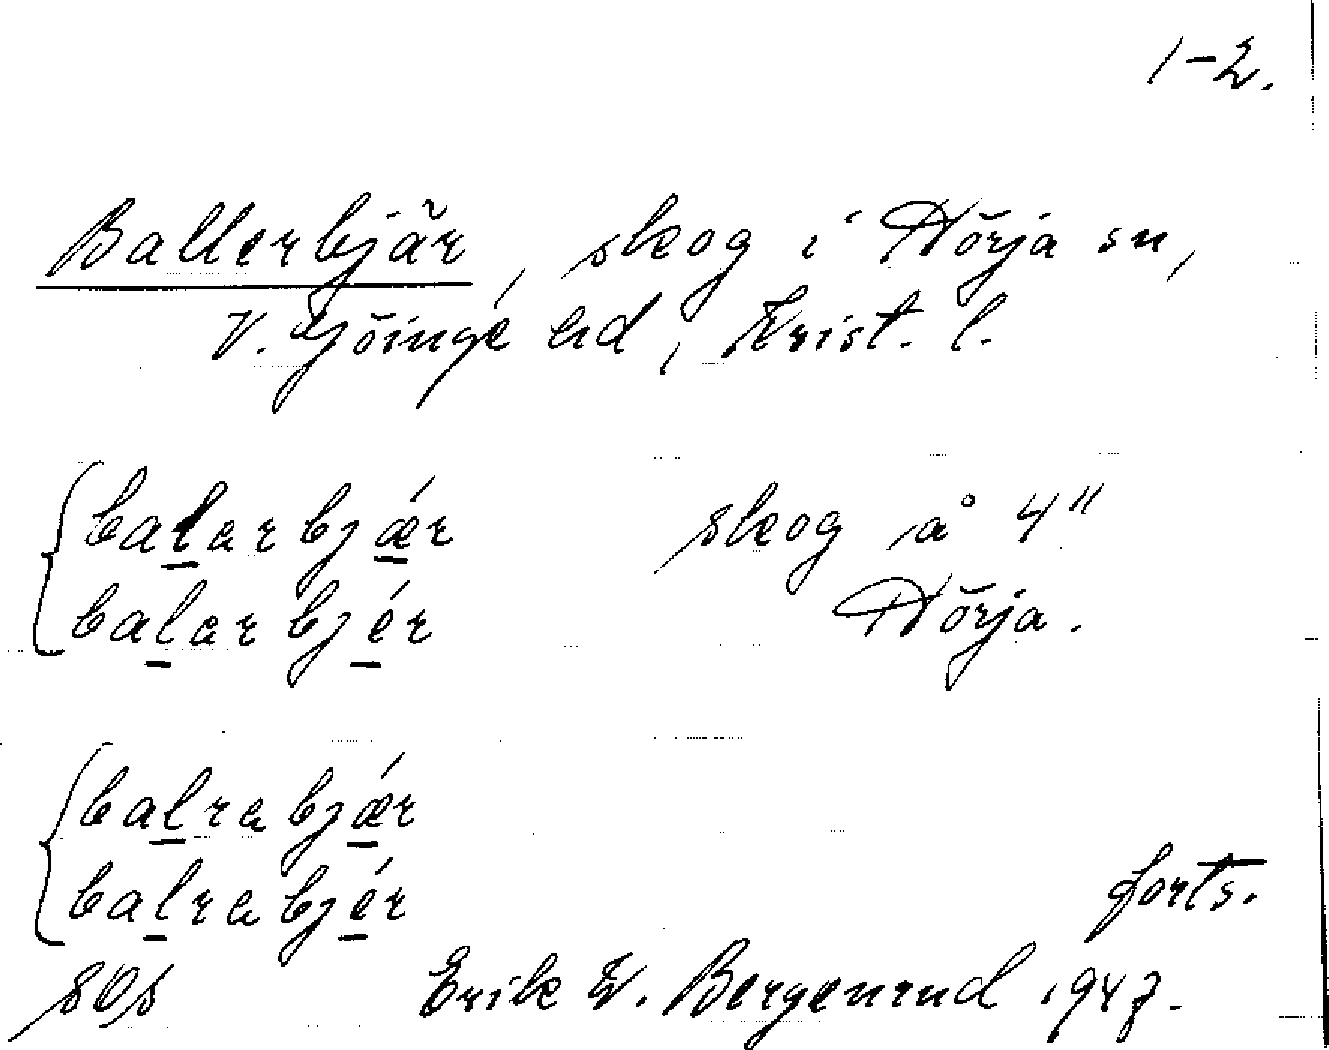 1-2.
Ballerbjär, skog i Nörja sn,
V. Göinge hd, Krist. l.
balarbjǽr skog å 4"
balarbjér Nörja.
balrabjǽr
balrabjér forts.
Erik W. Bergenrud 1947.